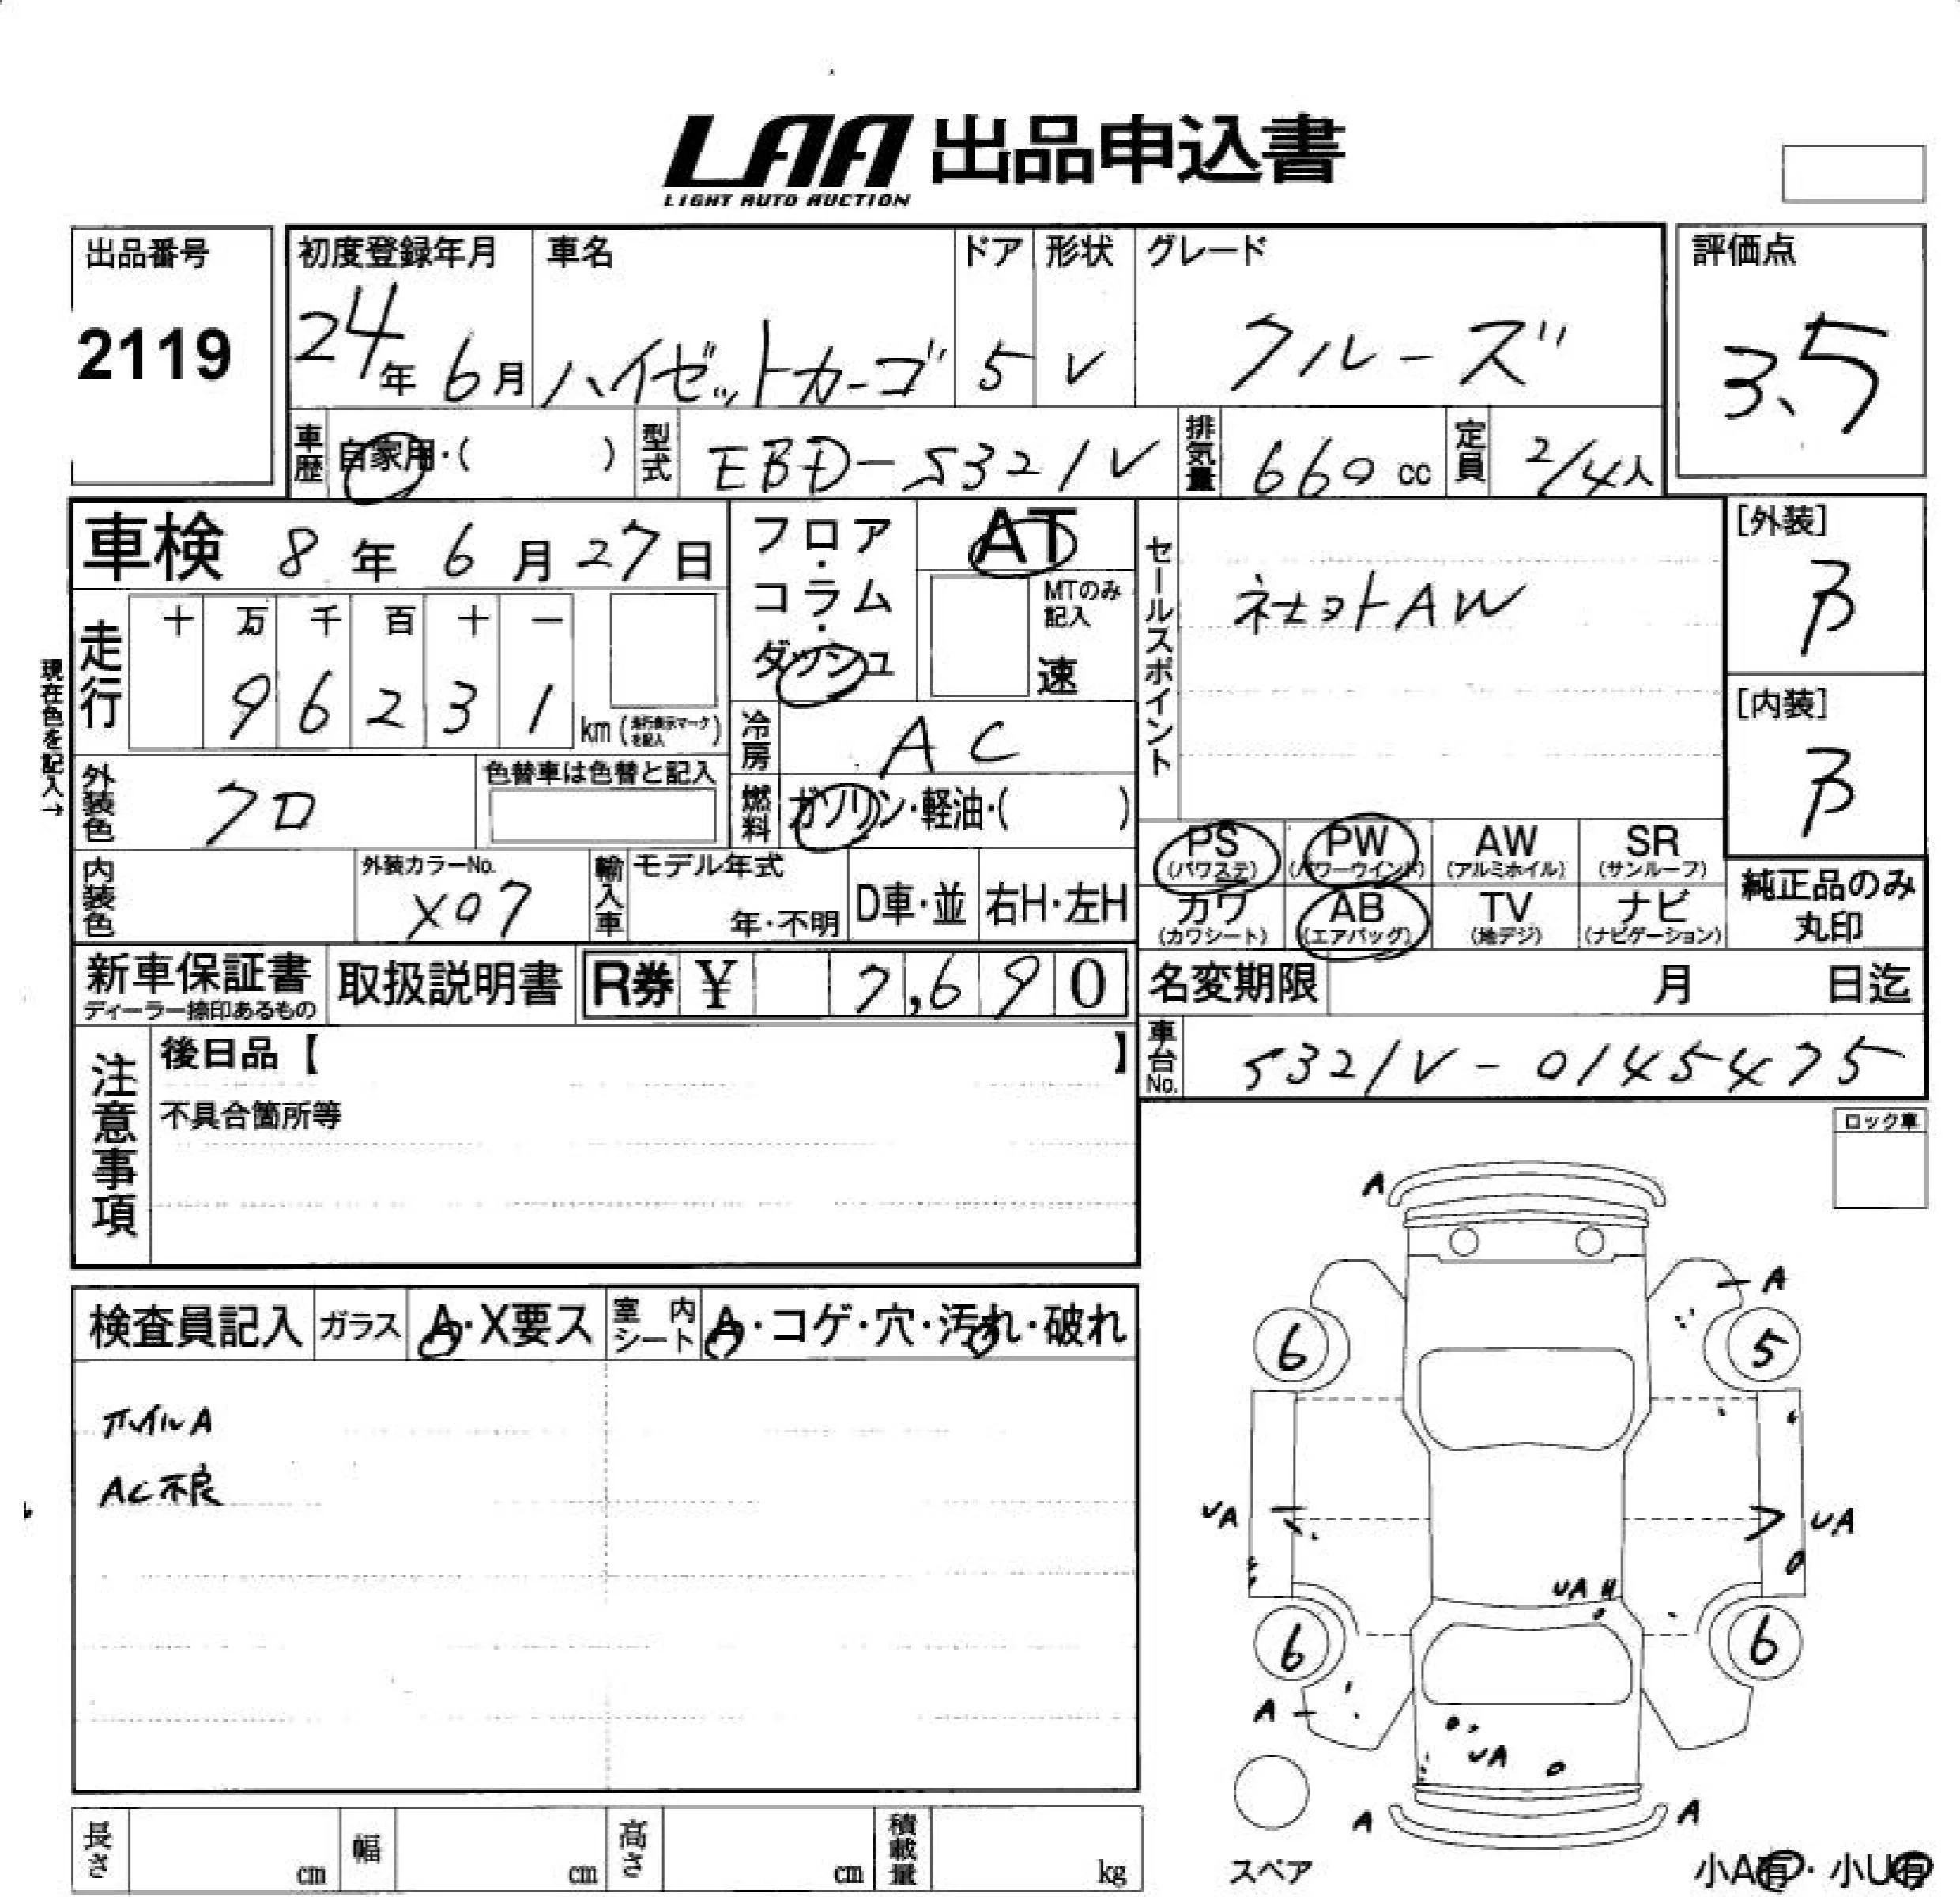 LAA 出品申込書
LIGHT AUTO AUCTION
出品番号
2119
初度登録年月
24年 6月
車名
ハイゼットカーゴ
ドア
5
形状
V
グレード
クルーズ
評価点
3.5
車歴 自家用・( )
型式 EBD-S321V
排気量 660 cc
定員 2/4人
車検 8年 6月 27日
現在色を記入→
走行 十 万 千 百 十 一
9 6 2 3 1 km (走行表示マークを記入)
フロア・コラム・ダッシュ
AT
MTのみ記入
速
冷房 AC
燃料 ガソリン・軽油・( )
外装色 クロ
色替車は色替と記入
内装色
外装カラーNo.
X07
輸入車 モデル年式
年・不明
D車・並 右H・左H
セールスポイント
AW
[外装]
B
[内装]
B
PS (パワステ) PW (パワーウインド) AW (アルミホイル) SR (サンルーフ)
カワ (カワシート) AB (エアバッグ) TV (地デジ) ナビ (ナビゲーション)
純正品のみ丸印
新車保証書
ディーラー捺印あるもの
取扱説明書
R券 ¥ 7,690
名変期限 月 日迄
車台No. S321V-0145475
注意事項
後日品【 】
不具合箇所等
ロック車
検査員記入 ガラス A・X要ス 室内シート A・コゲ・穴・汚れ・破れ
ホイルA
AC不良
A
A
6 5
UA UA
UA
6 6
A
UA
A A
スペア
小A有・小U有
長さ cm 幅 cm 高さ cm 積載量 kg